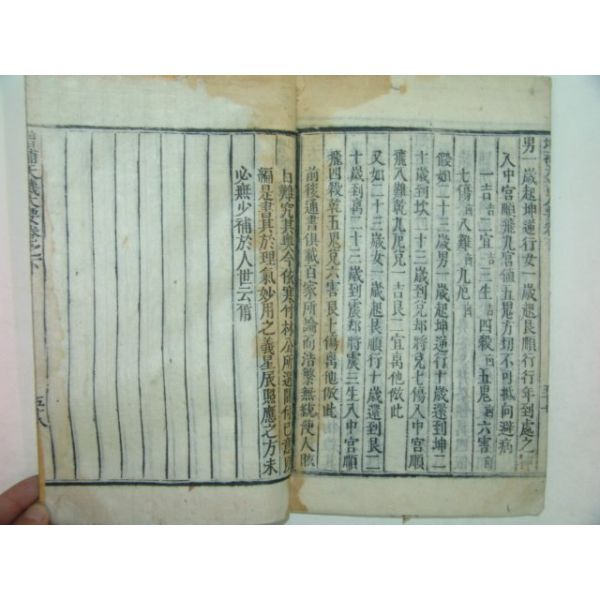 男一歲起坤逆行女一歲起艮順行行年到處之
入中宮順飛九宮值五鬼方切不可抵向避病
一吉 二宜 三生 四殺 五鬼 六害
七傷 八難 九厄
假如二十三歲男一歲起坤逆行十歲還到坤二
十歲到坎二十三歲到兌却將兌七傷入中宮順
飛八難乾九厄兌一吉艮二宜离他倣此
又如二十三歲女一歲起艮順行十歲還到艮二
十歲到离二十三歲到震却將震三生入中宮順
飛四殺乾五鬼兌六害艮七傷离他倣此
前後通書俱載百家所論而浩繁無統使人
白難究其奧今依寒竹林公所選附
編是書其於理氣妙用之義星辰照應之方未
必無少補於人世云爾
補天機大要卷之下
五十八